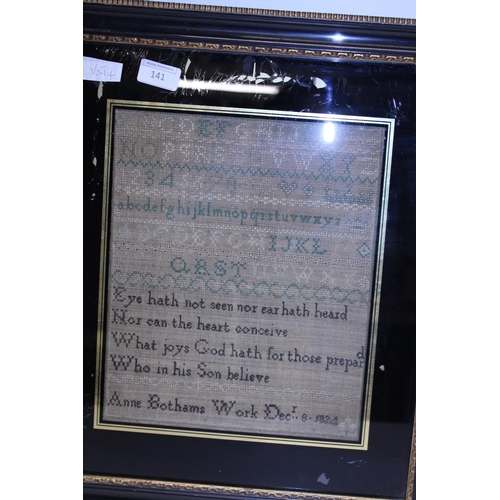 141
B C D E F G H
N O P Q R S T V W X Y
3 4 7 8
abcdefghijklmnopqrstuvwxyz
A B C D E F G H IJKL
QRST U V W X Y Z
Eye hath not seen nor ear hath heard
Nor can the heart conceive
What joys God hath for those prepard
Who in his Son believe
Anne Bothams Work Decr. 8. 1824